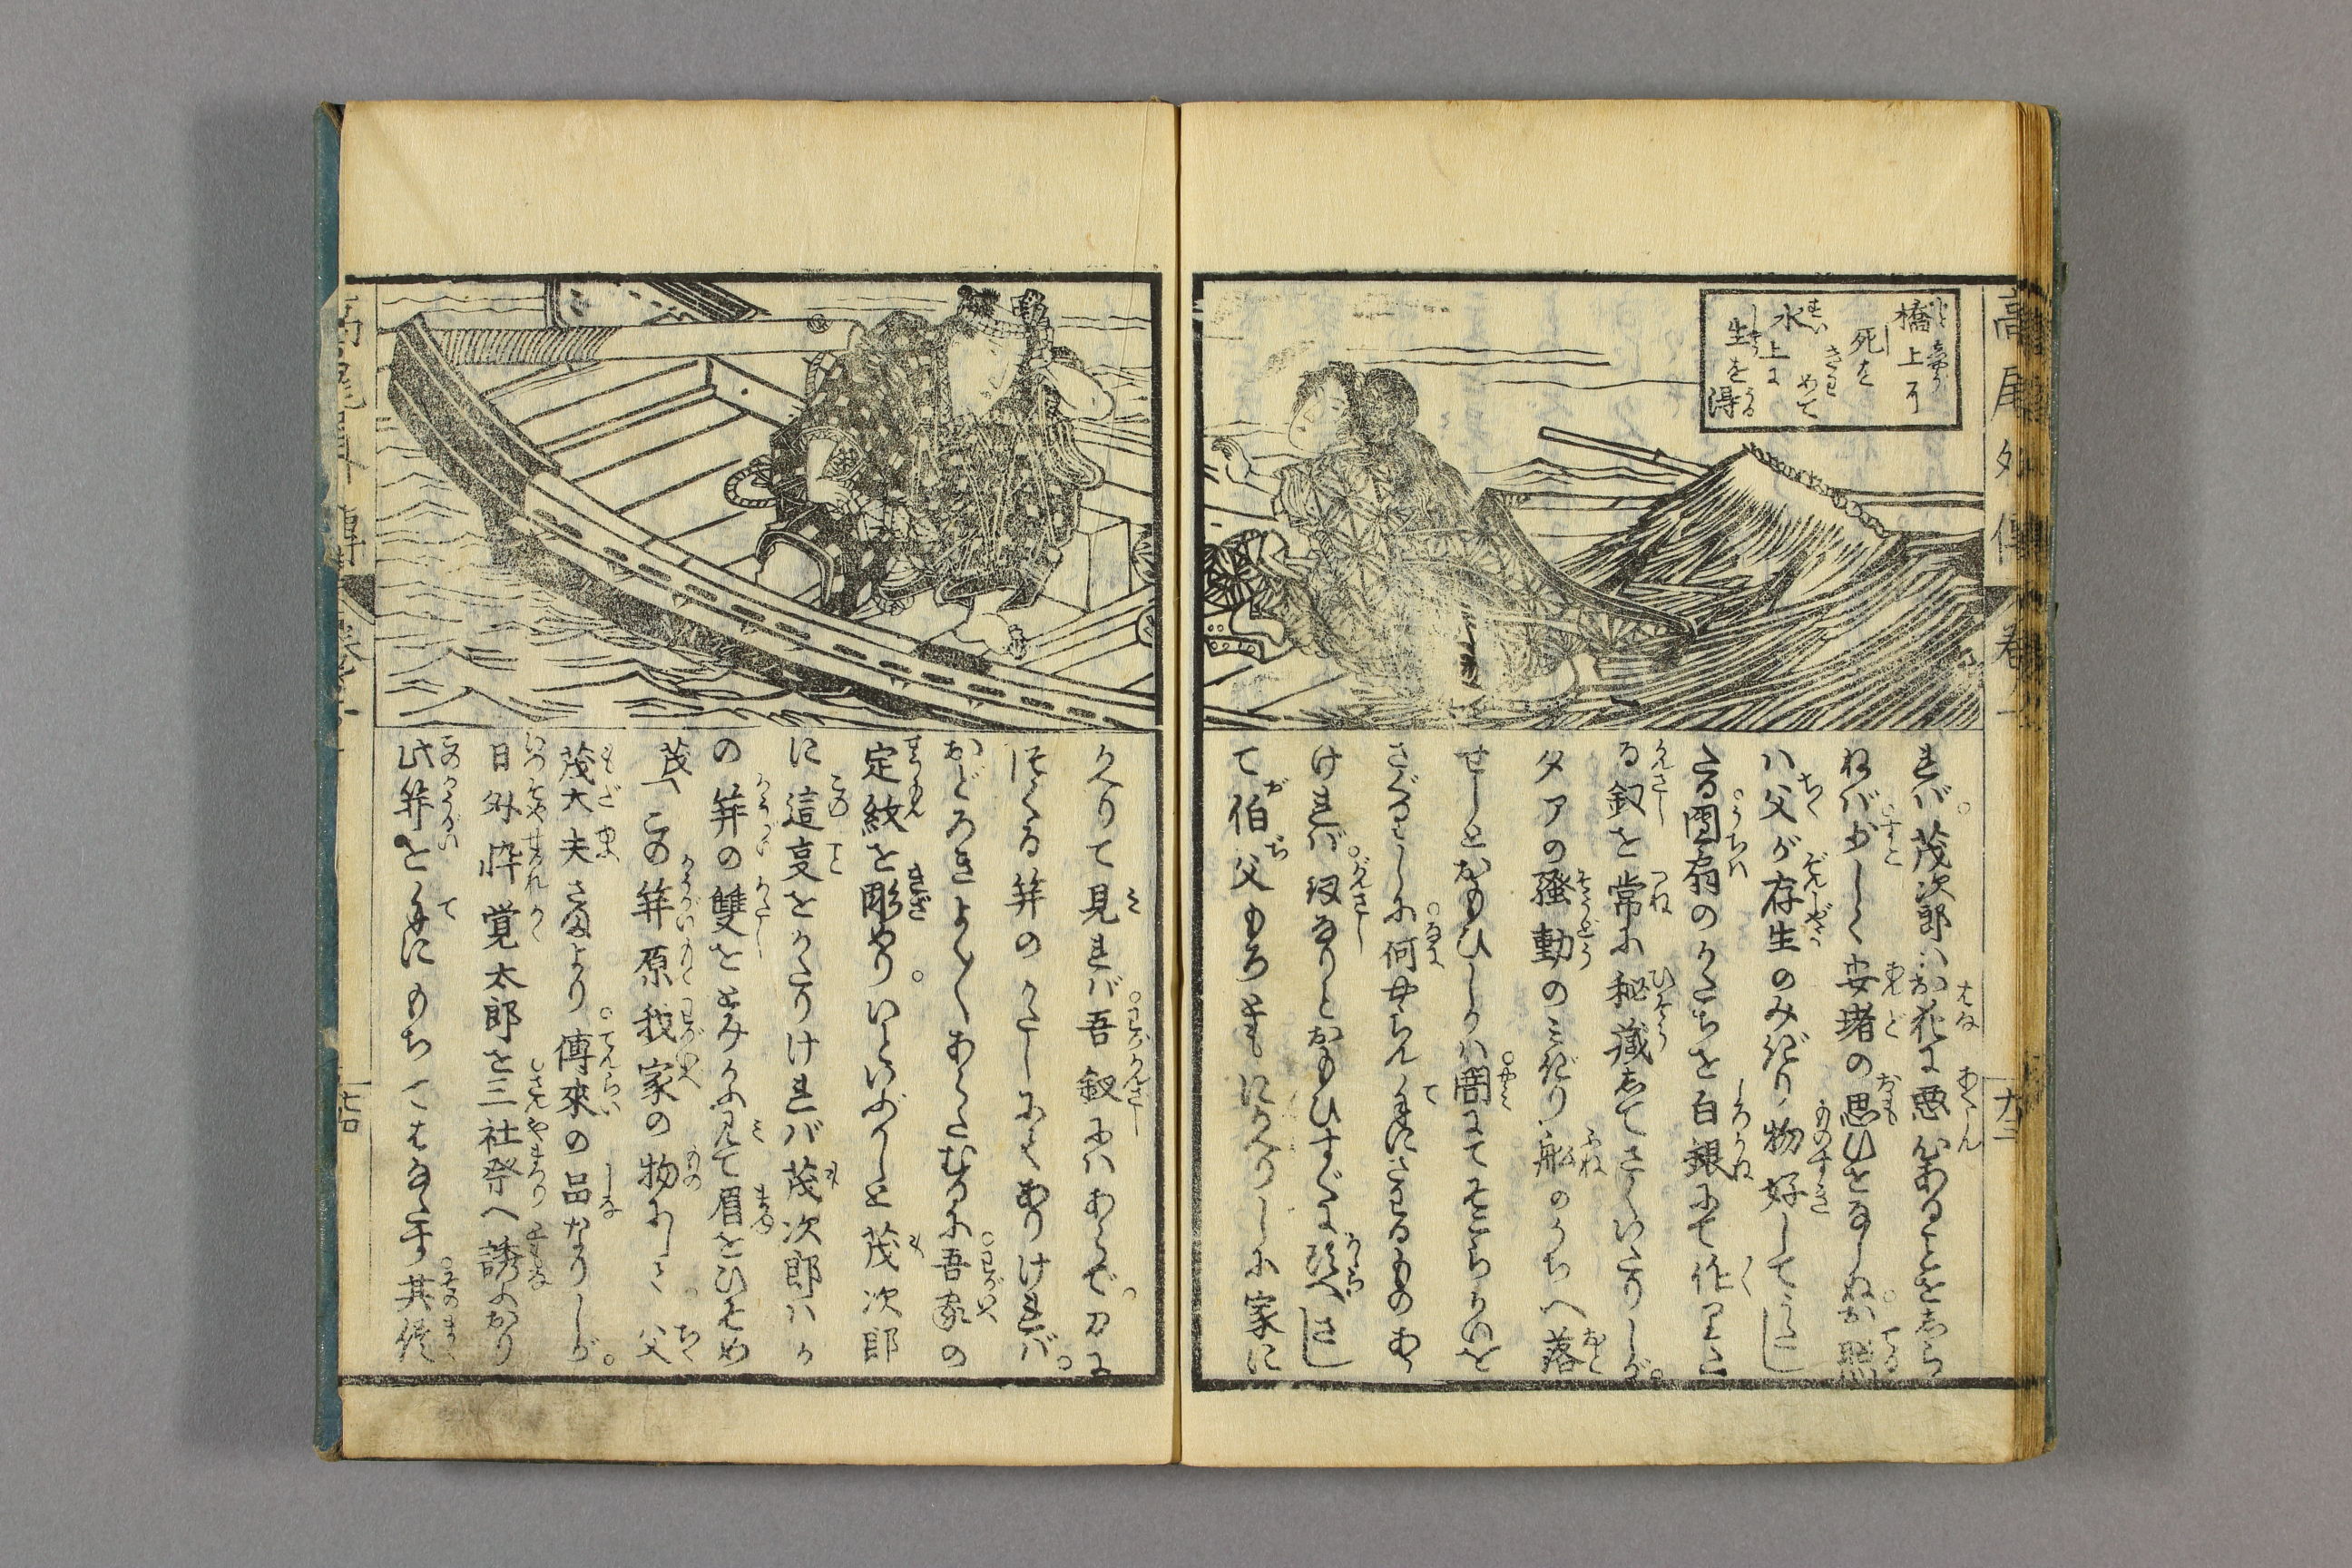 高尾外傳
橋上に
死を
きわめて
水上に
生を得
れバ茂次郎ハお花に悪心あることをしら
ねバ少しく安堵の思ひをなしぬ お照
ハ父が存生のみぎり物好してこしらへ
たる団扇のかたちを白銀にて作りた
る釵を常に秘蔵してさしいたりしが
夕アの騒動のミぎり船のうちへ落
せしとおもひしかハ闇にてそこらかいを
さぐりしに何やらん手にさわるものあり
けれバ釵なりとおもひすぐに頭へさし
て伯父もろともににかへりしに家に
かへりて見れバ吾釵にハあらで刀に
つくる笄のかたしにてありけれバ
おどろきよく〳〵あらたむるに吾家の
定紋を彫めりいといぶかしと茂次郎
に這叓をかたりけれバ茂次郎ハか
の笄の雙をとみかふ見て眉をひそめ
茂「この笄原我家の物にして父
茂太夫さまより傳來の品なりしが
日外忰覚太郎を三社祭へ誘ふおり
此笄を手にもちてはなさず其侭